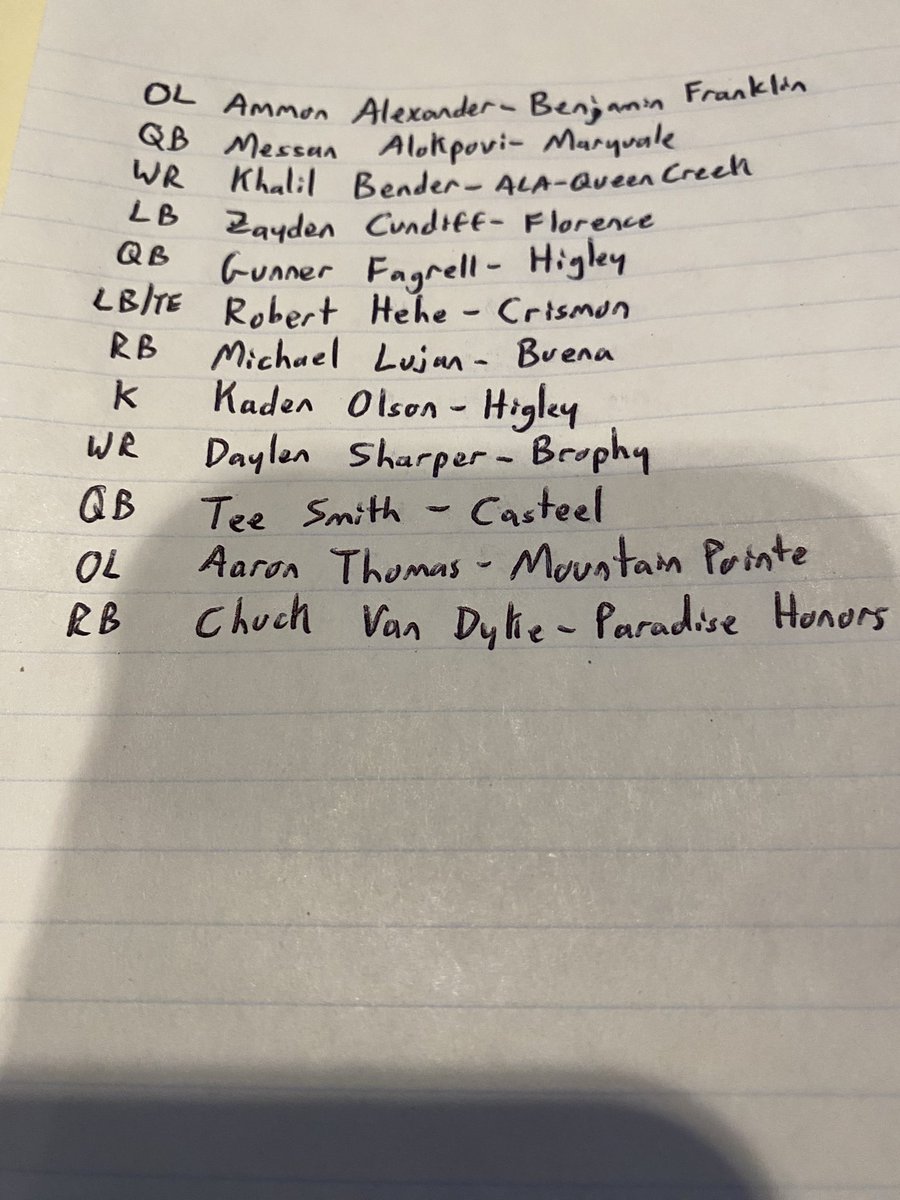 OL Ammon Alexander- Benjamin Franklin
QB Messan Alokpovi- Maryvale
WR Khalil Bender- ALA-Queen Creek
LB Zayden Cundiff- Florence
QB Gunner Fagrell- Higley
LB/TE Robert Hehe - Crismon
RB Michael Lujan- Buena
K Kaden Olson - Higley
WR Daylen Sharper- Brophy
QB Tee Smith - Casteel
OL Aaron Thomas - Mountain Pointe
RB Chuck Van Dyke- Paradise Honors